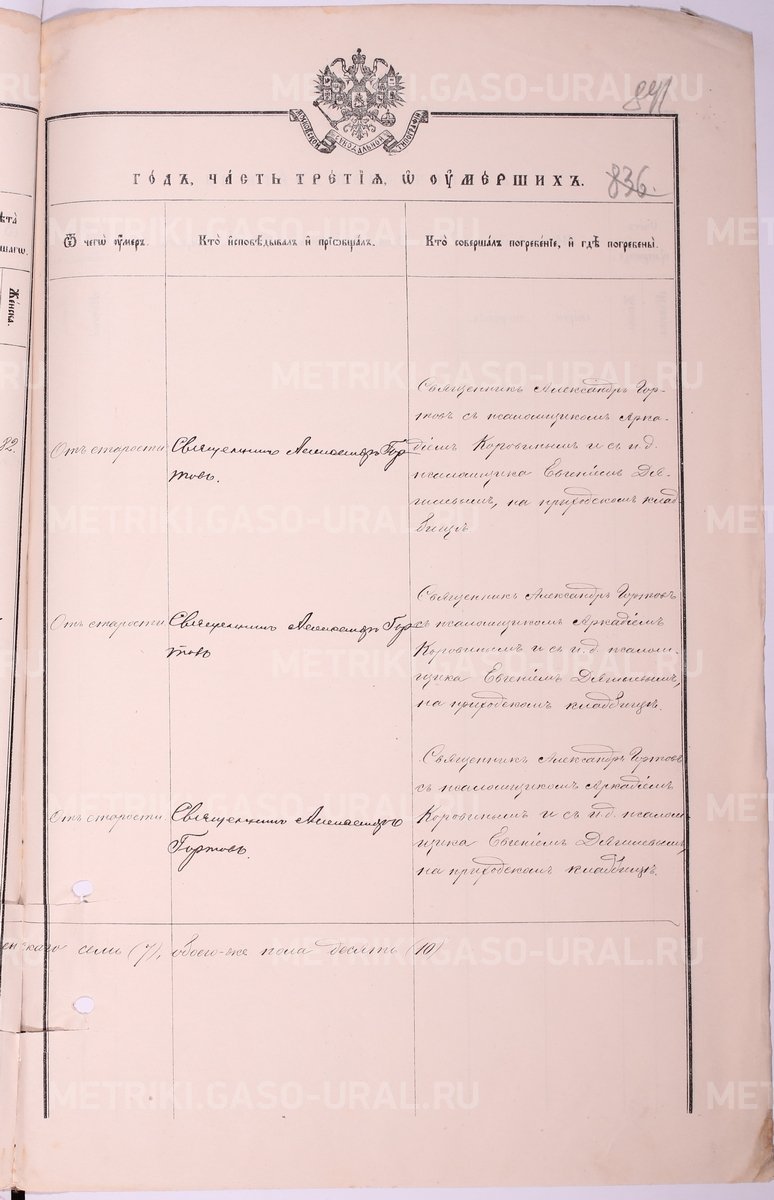 841
МОСКОВСКОЙ СѴНОДАЛЬНОЙ ТИПОГРАФІИ
ГО́ДЪ, ЧА́СТЬ ТРЕ́ТІѦ, Ѡ҆ ОУ҆МЕ́РШИХЪ.
836.
Ѿ чегѡ̀ оу҆́меръ.
Кто̀ и҆сповѣ́дывалъ и҆ прїѡбща́лъ.
Кто̀ соверша́лъ погребе́нїе, и҆ гдѣ̀ погребены̀.
ѣта̀
шагѡ.
Же́нска.
82.
Отъ старости
Священникъ Александръ Гор-
товъ.
Священникъ Александръ Гор-
товъ съ псаломщикомъ Арка-
діемъ Коровинымъ и съ и. д.
псаломщика Евгеніемъ
на приходскомъ клад-
бищѣ
Отъ старости
Священникъ Александръ Гор-
товъ
Священникъ Александръ Гортовъ
съ псаломщикомъ Аркадіемъ
Коровинымъ и съ и. д. псалом-
щика Евгеніемъ
на приходскомъ кладбищѣ.
Отъ старости.
Священникъ Александръ
Гортовъ.
Священникъ Александръ Гортовъ
съ псаломщикомъ Аркадіемъ
Коровинымъ и съ и. д. псалом-
щика Евгеніемъ
на приходскомъ кладбищѣ.
енскаго семь (7), обоего-же пола десять (10)
METRIKI.GASO-URAL.RU